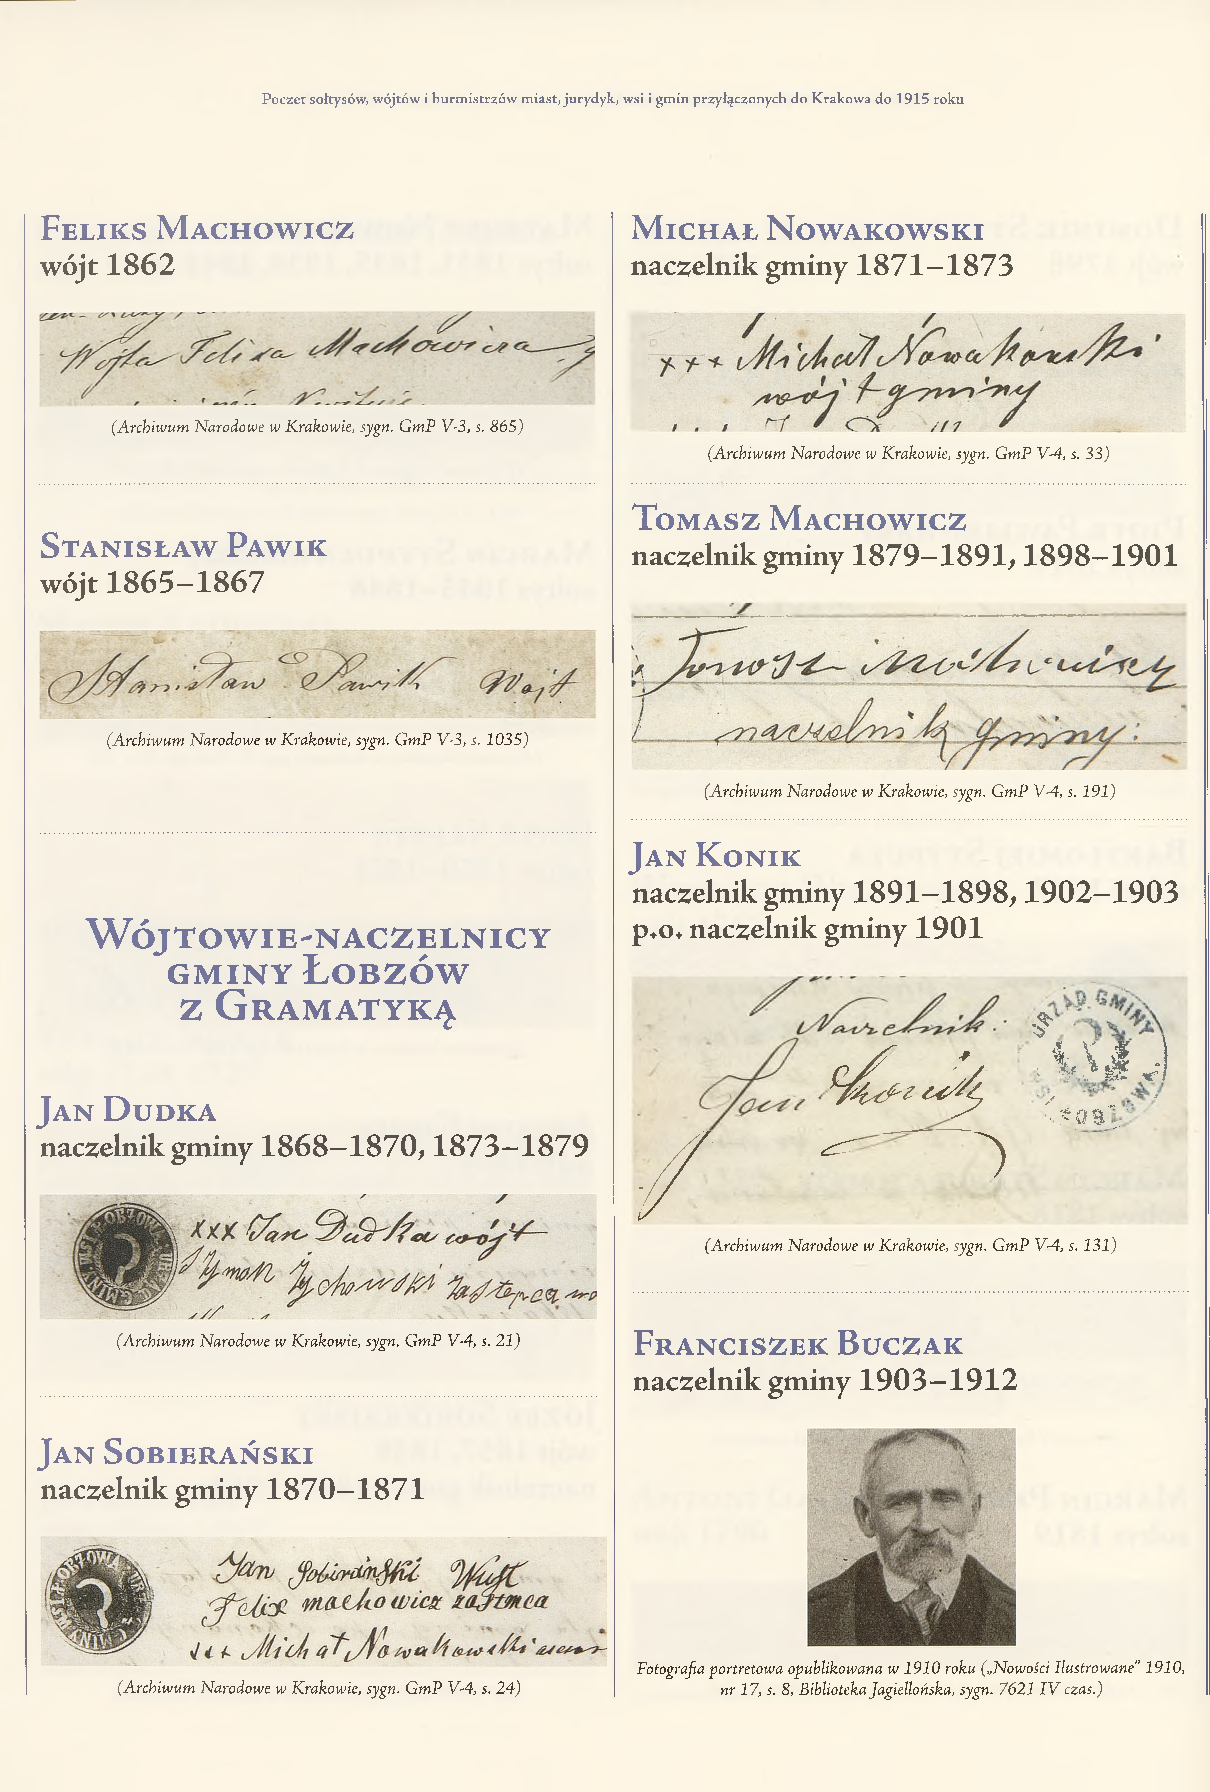 Poczet sołtysów, wójtów i burmistrzów miast, jurydyk, wsi i gmin przyłączonych do Krakowa do 1915 roku
Feliks Machowicz
wójt 1862
Wojta Felixa Machowicza
(Archiwum Narodowe w Krakowie, sygn. GmP V-3, s. 865)
Stanisław Pawik
wójt 1865–1867
Stanisław Pawik Wojt
(Archiwum Narodowe w Krakowie, sygn. GmP V-3, s. 1035)
Wójtowie-naczelnicy
gminy Łobzów
z Gramatyką
Jan Dudka
naczelnik gminy 1868–1870, 1873–1879
xxx Jan Dudka wójt
Szymon Żychowski zastepca wo
(Archiwum Narodowe w Krakowie, sygn. GmP V-4, s. 21)
Jan Sobierański
naczelnik gminy 1870–1871
Jan Sobirański Wujt
Felix machowicz zastmca
+++ Michał Nowakowski
(Archiwum Narodowe w Krakowie, sygn. GmP V-4, s. 24)
Michał Nowakowski
naczelnik gminy 1871–1873
+++ Michał Nowakowski
wójt gminy
(Archiwum Narodowe w Krakowie, sygn. GmP V-4, s. 33)
Tomasz Machowicz
naczelnik gminy 1879–1891, 1898–1901
Tomasz Machowicz
naczelnik gminy:
(Archiwum Narodowe w Krakowie, sygn. GmP V-4, s. 191)
Jan Konik
naczelnik gminy 1891–1898, 1902–1903
p.o. naczelnik gminy 1901
Naczelnik:
Jan Konik
URZĄD GMINY
WSI ŁOBZOWA.
(Archiwum Narodowe w Krakowie, sygn. GmP V-4, s. 131)
Franciszek Buczak
naczelnik gminy 1903–1912
Fotografia portretowa opublikowana w 1910 roku („Nowości Ilustrowane” 1910,
nr 17, s. 8, Biblioteka Jagiellońska, sygn. 7621 IV czas.)